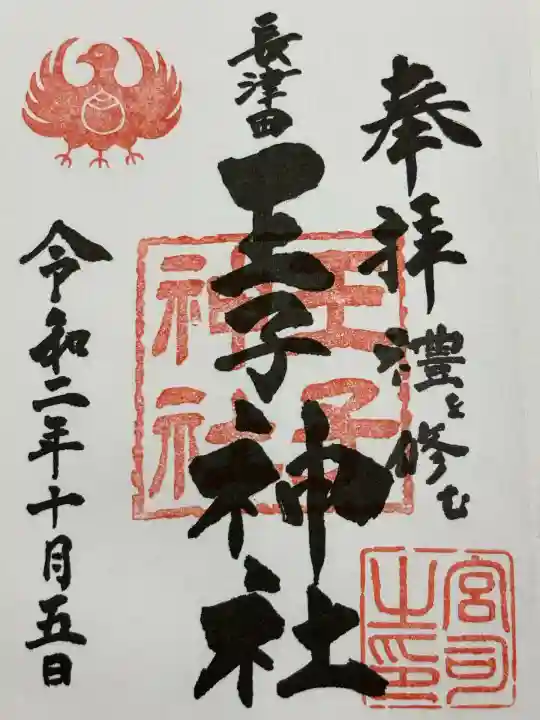 奉拝 禮を修む
長津田
王子神社
王子神社
宮司之印
令和二年十月五日